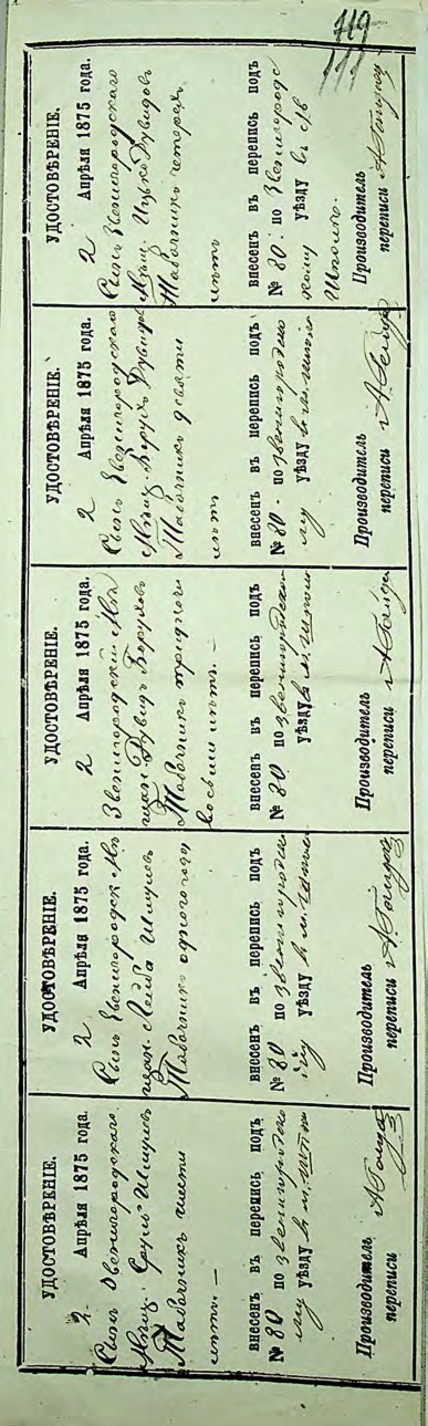 719
УДОСТОВѢРЕНІЕ.
2 Апрѣля 1875 года.
Сынъ Звенигородскаго
Мѣщ. Сруль Шмулев
Табачникъ шести
лѣтъ. —
внесенъ въ перепись подъ
№ 80 по звенигородско
му уѣзду въ м.
Производитель
переписи
УДОСТОВѢРЕНІЕ.
2 Апрѣля 1875 года.
Сынъ Звенигородск. Мѣ
щан. Лейба Шмулев
Табачникъ одного году
внесенъ въ перепись подъ
№ 80 по
уѣзду въ м.
Производитель
переписи
УДОСТОВѢРЕНІЕ.
2 Апрѣля 1875 года.
Звенигородскій Мѣ
щан. Дувидъ Борухов
Табачникъ тридцати
восьми лѣтъ. —
внесенъ въ перепись подъ
№ 80 по звенигородском
уѣзду въ м.
Производитель
переписи
УДОСТОВѢРЕНІЕ.
2 Апрѣля 1875 года.
Сынъ Звенигородскаго
Мѣщ. Борухъ Дувидов
Табачникъ девяти
лѣтъ
внесенъ въ перепись подъ
№ 80 - по звенигородско
му уѣзду въ м.
Производитель
переписи
УДОСТОВѢРЕНІЕ.
2 Апрѣля 1875 года.
Сынъ Звенигородскаго
Мѣщ. Ицько Дувидовъ
Табачникъ четырехъ
лѣтъ
внесенъ въ перепись подъ
№ 80. по Звенигородс
кому уѣзду въ
Шполѣ.
Производитель
переписи